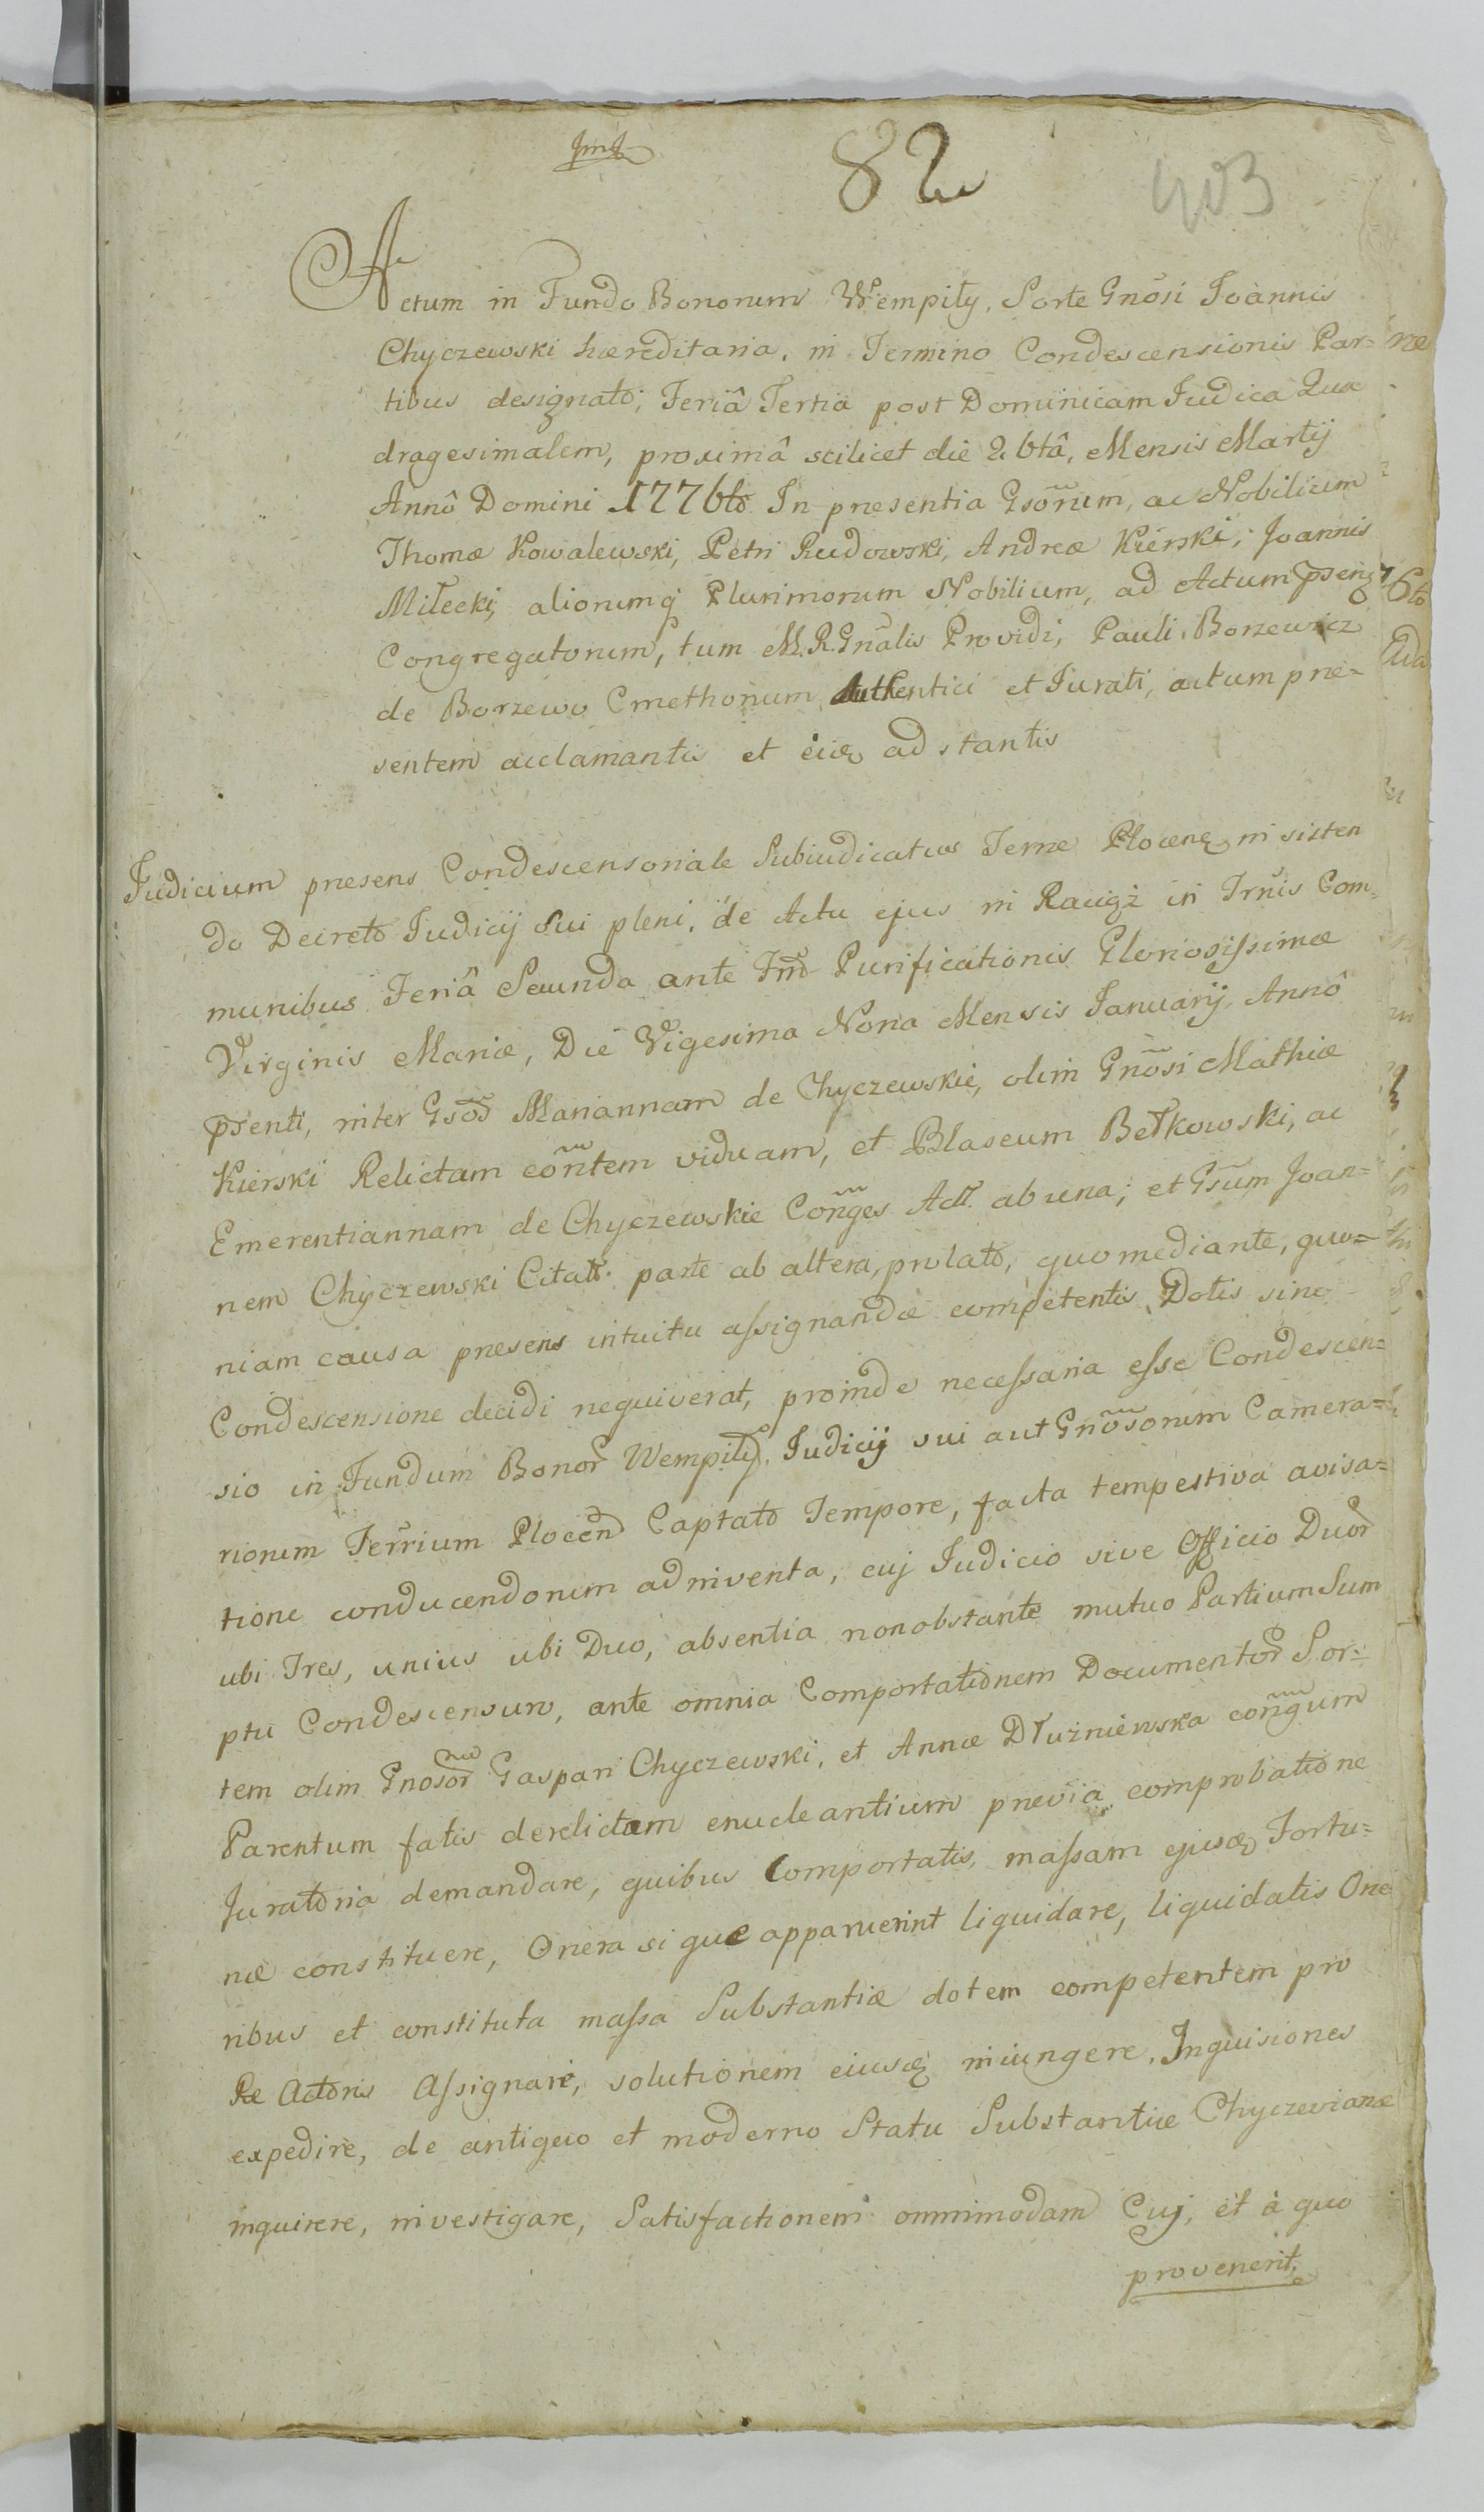 JmJ
82
403
Actum in Fundo Bonorum Wempiły, Sorte Gnōsi Joannis
Chyczewski hæreditaria, in Termino Condescensionis Par=
tibus designato; Feriâ Tertia post Dominicam Judica Qua
dragesimalem, proximâ scilicet die 26tâ, Mensis Martij
Annô Domini 1776to In presentia Gsōrum, ac Nobilium
Thomæ Kowalewski, Petri Rudowski, Andreæ Kierski, Joannis
Miłecki, aliorumq Plurimorum Nobilium, ad Actum psens
Congregatorum, tum M.R.Gnālis Providi, Pauli Borzewicz
de Borzewo Cmethonum Authentici et Jurati, actum pre=
sentem acclamantis et eidē adstantis
Judicium presens Condescensoriale Subiudicatus Terræ Plocenē insisten
do Decreto Judicij sui pleni, de Actu ejus in Raciąż in Trnis Com=
munibus Feriâ Secunda ante Fm̄ Purificationis Gloriosissimæ
Virginis Mariæ, Die Vigesima Nona Mensis Januarij Annô
psenti, inter Gsōd Mariannam de Chyczewskie, olim Gnōsi Mathiæ
Kierski Relictam cōntem viduam, et Blaseum Bełkowski, ac
Emerentiannam de Chyczewskie Cōnges Act. ab una; et Gsūm Joan=
nem Chyczewski Citatt. parte ab altera, prolato, quo mediante, quo=
niam causa presens intuitu assignandæ competentis Dotis sine
Condescensione decidi nequiverat, proinde necessaria esse Condescen=
sio in Fundum Bonor Wempiły, Judicij sui aut Gnōsorum Camera=
riorum Terrium Plocen Captato Tempore, facta tempestiva avisa=
tione conducendorum adinventa, cuj Judicio sive Officio Duor
ubi Tres, unius ubi Duo, absentia non obstante mutuo Partium Sum
ptu Condescensuro, ante omnia Comportationem Documentor Sor=
tem olim Gnosōr Gaspari Chyczewski, et Annæ Dłużniewska cōngum
Parentum fatis derelictam enucleantium previa comprobatione
Juratoria demandare, quibus Comportatis, massam ejusdē Fortu=
næ constituere, Onera si quæ apparuerint liquidare, liquidatis One
ribus et constituta massa Substantiæ dotem competentem pro
Re Actoris Assignare, solutionem eiusdē iniungere, Inquisiones
expedire, de antiquo et moderno Statu Substantiæ Chyczevianæ
inquirere, investigare, Satisfactionem omnimodam Cuj, et à quo
provenerit,